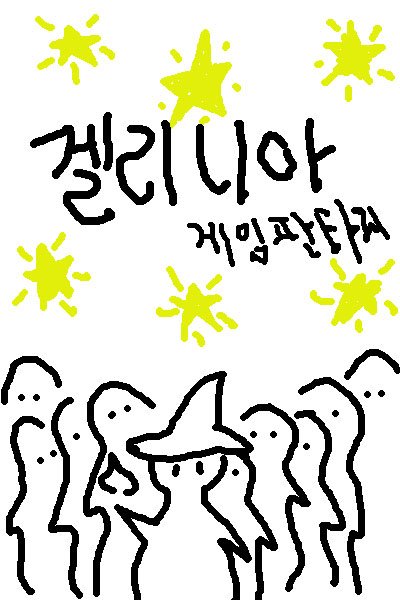 겔리니아
게임판타지